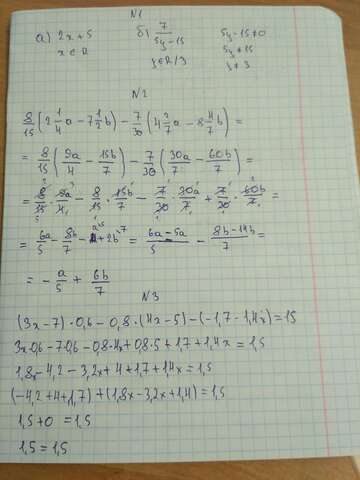 N1
а) 2x+5 б) 7/(5y-15) 5y-15≠0
x∈R y∈R/3 5y≠15
y≠3
N2
8/15(2 1/4a-7 1/2b)-7/30(4 2/7a-8 4/7b)=
=8/15(9a/4-15b/7)-7/30(30a/7-60b/7)=
=8/15·9a/4-8/15·15b/7-7/30·30a/7+7/30·60b/7=
=6a/5-8b/7-a+2b=(6a-5a)/5-(8b-14b)/7=
=-a/5+6b/7
N3
(3x-7)·0,6-0,8·(4x-5)-(-1,7-1,4x)=1,5
3x·0,6-7·0,6-0,8·4x+0,8·5+1,7+1,4x=1,5
1,8x-4,2-3,2x+4+1,7+1,4x=1,5
(-4,2+4+1,7)+(1,8x-3,2x+1,4)=1,5
1,5+0=1,5
1,5=1,5